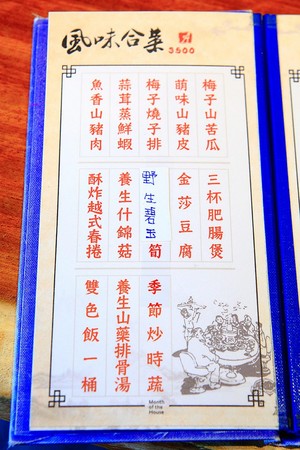 風味合菜
3500
梅子山苦瓜
萌味山豬皮
梅子燒子排
蒜茸蒸鮮蝦
魚香山豬肉
三杯肥腸煲
金莎豆腐
野生碧玉筍
養生什錦菇
酥炸越式春捲
季節炒時蔬
養生山藥排骨湯
雙色飯一桶
Month
of the
House